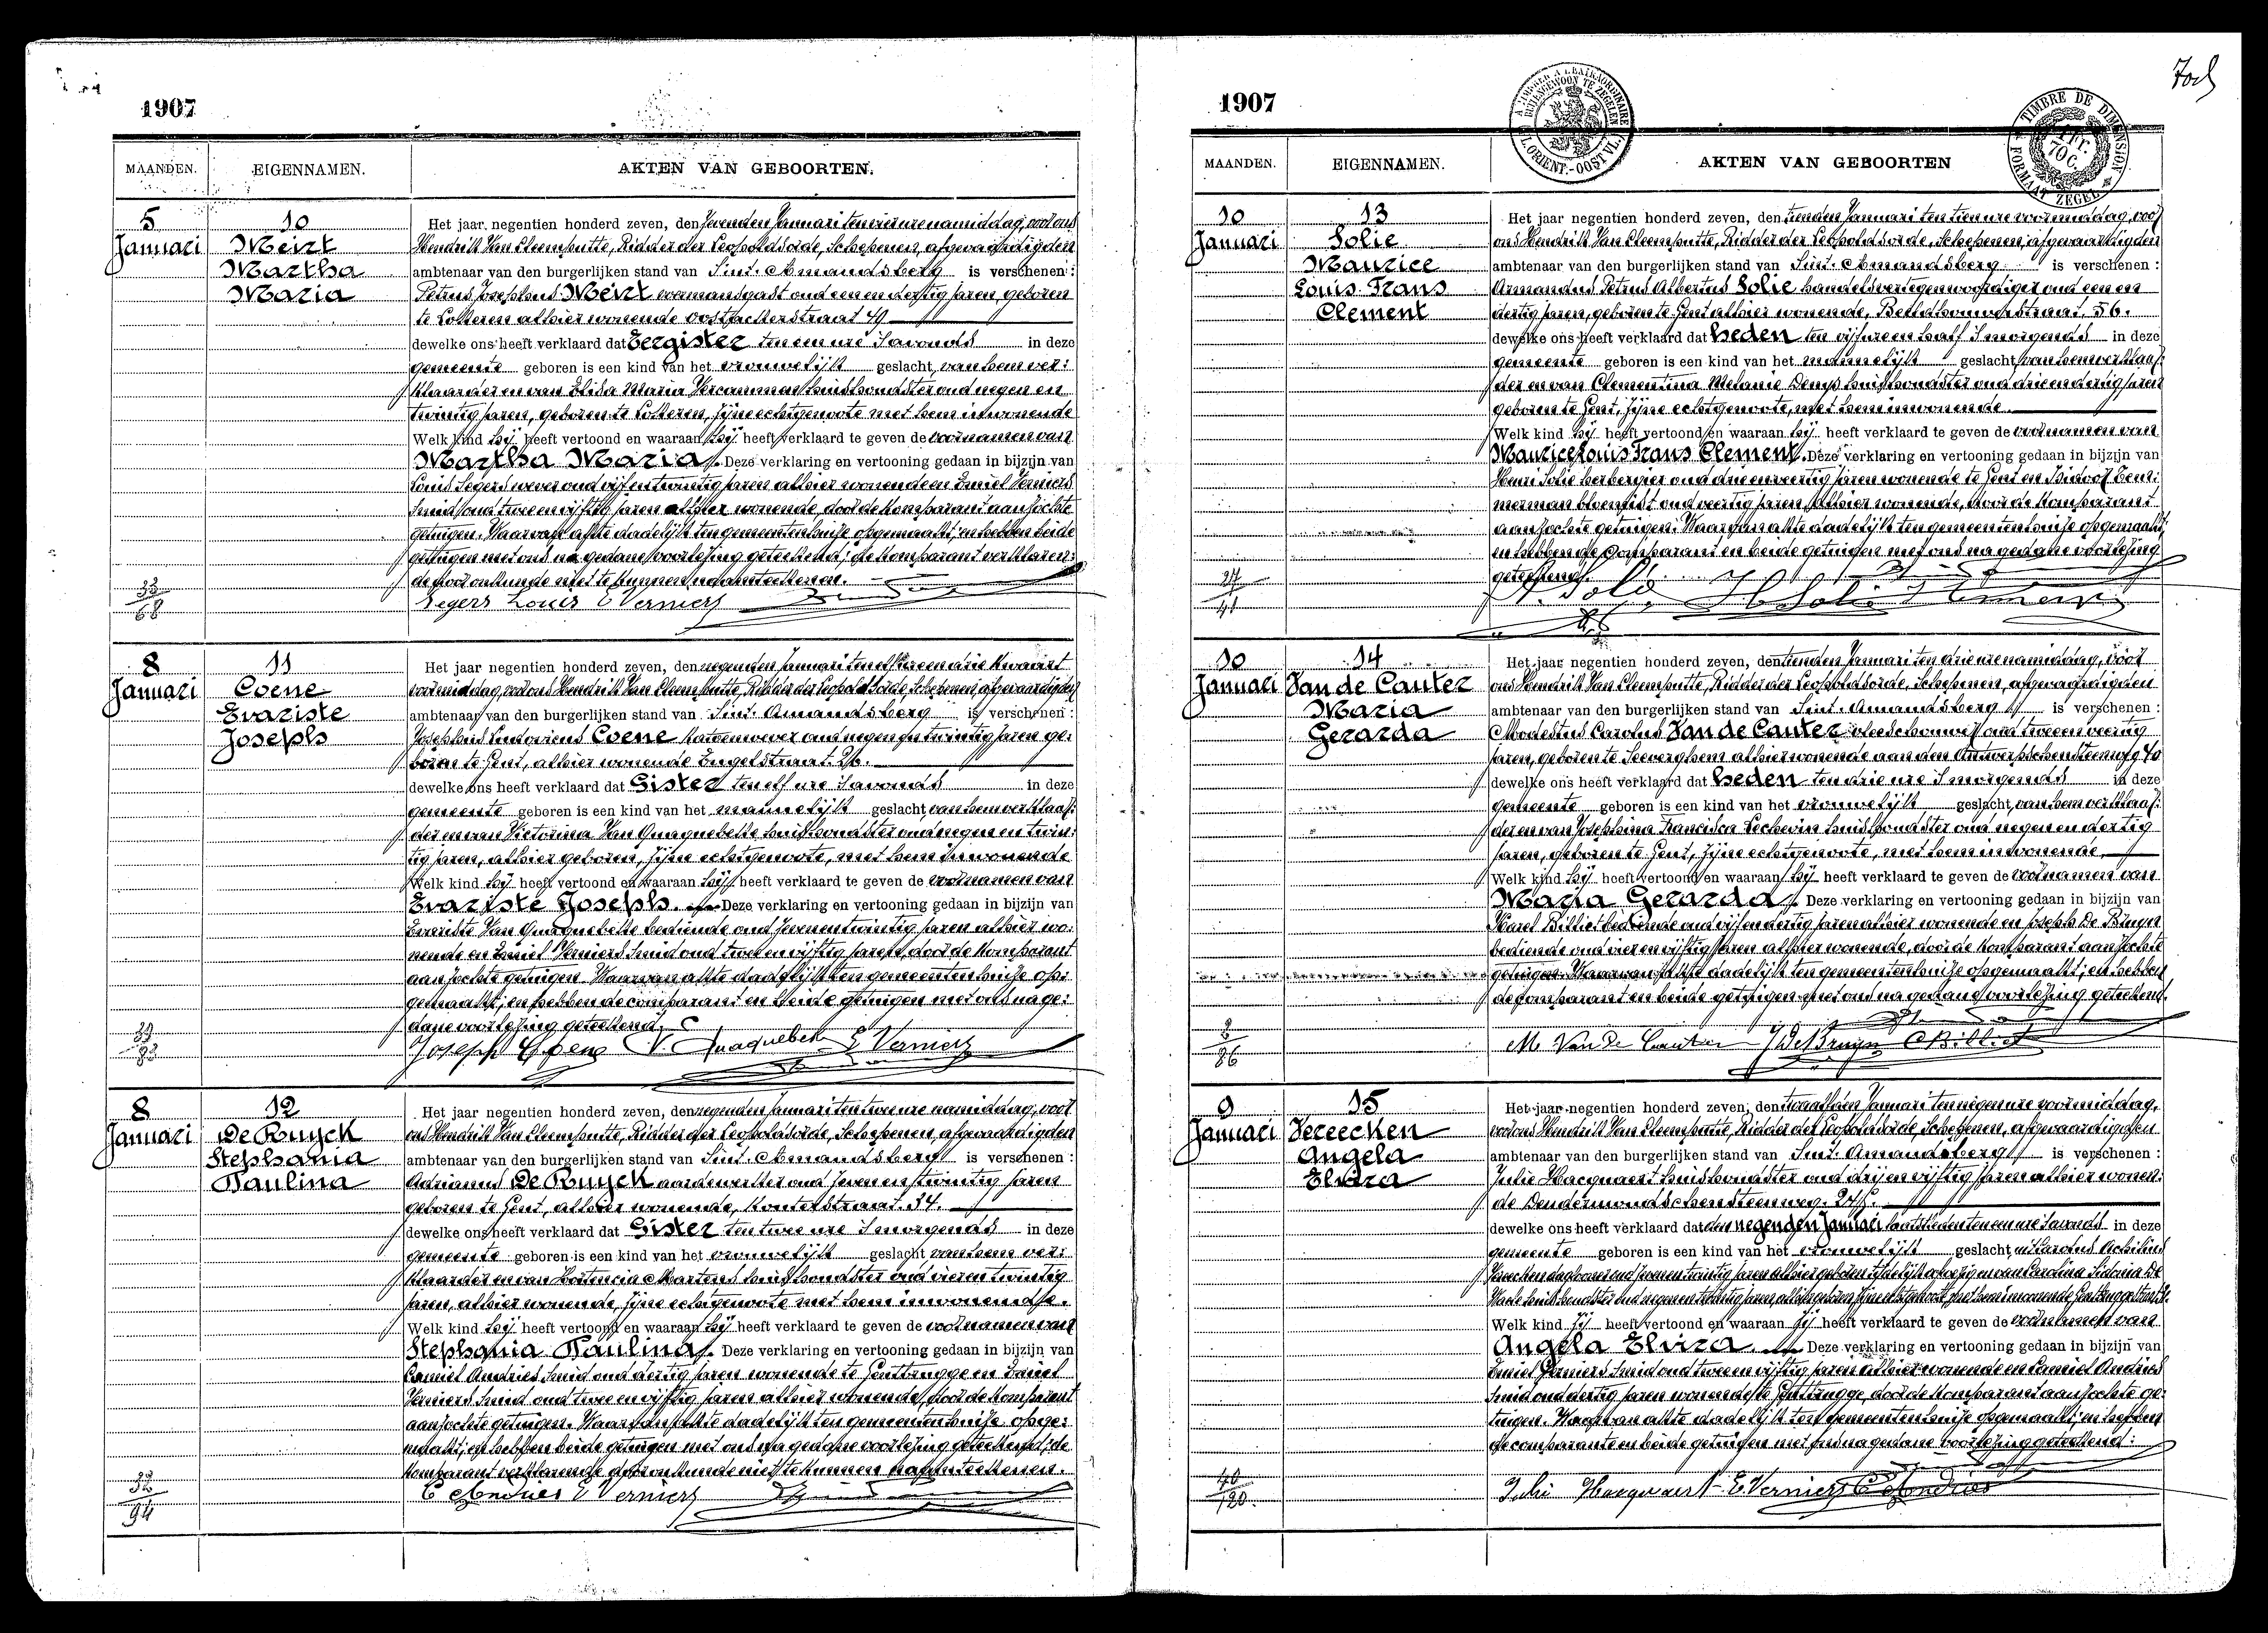 1907
MAANDEN. EIGENNAMEN. AKTEN VAN GEBOORTEN.
5 10
Januari Meirt
Martha
Maria
Het jaar negentien honderd zeven, den zevenden Januari ten vier ure namiddag, voor ons
Hendrik Van Cleemputte, Ridder der Leopoldsorde, Schepenen, afgevaardigden
ambtenaar van den burgerlijken stand van Sint-Amandsberg is verschenen:
Petrus Josephus Meirt voermansgast oud een en dertig jaren, geboren
te Lokeren alhier wonende Oostackerstraat 49
dewelke ons heeft verklaard dat Eergister ten een ure s'avonds in deze
gemeente geboren is een kind van het vrouwelijk geslacht, van hem ver:
klaarder en van Elisa Maria Vercammen huishoudster oud negen en
twintig jaren, geboren te Lokeren, zijne echtgenoote met hem inwonende
Welk kind hij heeft vertoond en waaraan hij heeft verklaard te geven de voornamen van
Martha Maria. Deze verklaring en vertooning gedaan in bijzijn van
Louis Segers wever oud vijf en twintig jaren alhier wonende en Emiel Verniers
smid oud twee en vijftig jaren alhier wonende, door de komparant aanzochte
getuigen. Waarvan akte dadelijk ten gemeentenhuize opgemaakt; en hebben beide
getuigen met ons na gedane voorlezing geteekend; de komparant verklaren:
de door onkunde niet te kunnen naamteekenen.
Segers Louis E Verniers
33
68
8 11
Januari Coene
Evariste
Joseph
Het jaar negentien honderd zeven, den negenden Januari ten elf ure en drie kwaart
voormiddag, voor ons Hendrik Van Cleemputte, Ridder der Leopoldsorde, Schepenen, afgevaardigden
ambtenaar van den burgerlijken stand van Sint-Amandsberg is verschenen:
Josephus Ludovicus Coene katoenwever oud negen en twintig jaren ge:
boren te Gent, alhier wonende Engelstraat 26.
dewelke ons heeft verklaard dat Gister ten elf ure s'avonds in deze
gemeente geboren is een kind van het mannelijk geslacht, van hem verklaar:
der en van Victorina Van Quaquebeke huishoudster oud negen en twin:
tig jaren, alhier geboren, zijne echtgenoote, met hem inwonende
Welk kind hij heeft vertoond en waaraan hij heeft verklaard te geven de voornamen van
Evariste Joseph. Deze verklaring en vertooning gedaan in bijzijn van
Evariste Van Quaquebeke bediende oud zeven en twintig jaren alhier wo:
nende en Emiel Verniers smid oud twee en vijftig jaren, door de komparant
aanzochte getuigen. Waarvan akte dadelijk ten gemeentenhuize op:
gemaakt; en hebben de comparant en beide getuigen met ons na ge:
dane voorlezing geteekend.
Joseph Coene V. Quaquebeke E Verniers
8 12
Januari De Ruyck
Stephania
Paulina
Het jaar negentien honderd zeven, den negenden Januari ten twee ure namiddag, voor
ons Hendrik Van Cleemputte, Ridder der Leopoldsorde, Schepenen, afgevaardigden
ambtenaar van den burgerlijken stand van Sint-Amandsberg is verschenen:
Adrianus De Ruyck aardewerker oud zeven en twintig jaren
geboren te Gent, alhier wonende, Kouterstraat 34.
dewelke ons heeft verklaard dat Gister ten twee ure s'morgends in deze
gemeente geboren is een kind van het vrouwelijk geslacht van hem ver:
klaarder en van Hortencia Martens huishoudster oud vier en twintig
jaren, alhier wonende, zijne echtgenoote met hem inwonende.
Welk kind hij heeft vertoond en waaraan hij heeft verklaard te geven de voornamen van
Stephania Paulina. Deze verklaring en vertooning gedaan in bijzijn van
Camiel Andries smid oud dertig jaren wonende te Gentbrugge en Emiel
Verniers smid oud twee en vijftig jaren alhier wonende, door de komparant
aanzochte getuigen. Waarvan akte dadelijk ten gemeentenhuize opge:
maakt; en hebben beide getuigen met ons na gedane voorlezing geteekend; de
komparant verklarende door onkunde niet te kunnen naamteekenen.
C Andries E Verniers
94
1907
MAANDEN. EIGENNAMEN. AKTEN VAN GEBOORTEN
TIMBRE DE DIMENSION FORMAAT ZEGEL
10 13
Januari Solie
Maurice
Louis Frans
Clement
Het jaar negentien honderd zeven, den tienden Januari ten tien ure voormiddag, voor
ons Hendrik Van Cleemputte, Ridder der Leopoldsorde, Schepenen, afgevaardigden
ambtenaar van den burgerlijken stand van Sint-Amandsberg is verschenen:
Armandus Petrus Albertus Solie handelsvertegenwoordiger oud een en
dertig jaren, geboren te Gent alhier wonende, 56.
dewelke ons heeft verklaard dat heden ten vijf ure en half s'morgends in deze
gemeente geboren is een kind van het mannelijk geslacht, van hem verklaar:
der en van Clementina Melanie Denys huishoudster oud drie en dertig jaren
geboren te Gent, zijne echtgenoote, met hem inwonende.
Welk kind hij heeft vertoond en waaraan hij heeft verklaard te geven de voornamen van
Maurice Louis Frans Clement. Deze verklaring en vertooning gedaan in bijzijn van
Henri Solie herbergier oud drie en veertig jaren wonende te Gent en Isidoor Tem:
merman bloemist oud veertig jaren, alhier wonende, door de komparant
aanzochte getuigen. Waarvan akte dadelijk ten gemeentenhuize opgemaakt;
en hebben de comparant en beide getuigen met ons na gedane voorlezing
geteekend.
27
41
10 14
Januari Van de Cauter
Maria
Gerarda
Het jaar negentien honderd zeven, den tienden Januari ten drie ure namiddag, voor
ons Hendrik Van Cleemputte, Ridder der Leopoldsorde, Schepenen, afgevaardigden
ambtenaar van den burgerlijken stand van Sint-Amandsberg is verschenen:
Modestus Carolus Van de Cauter vleeschouwer oud twee en veertig
jaren, geboren te Seeverghem alhier wonende aan den Antwerpschensteenweg 40
dewelke ons heeft verklaard dat heden ten drie ure s'morgends in deze
gemeente geboren is een kind van het vrouwelijk geslacht, van hem verklaar:
der en van Josephina Francisca Lechevin huishoudster oud negen en dertig
jaren, geboren te Gent, zijne echtgenoote, met hem inwonende,
Welk kind hij heeft vertoond en waaraan hij heeft verklaard te geven de voornamen van
Maria Gerarda. Deze verklaring en vertooning gedaan in bijzijn van
Karel Billiet bediende oud vijf en dertig jaren alhier wonende en Joseph De Bruyn
bediende oud vier en vijftig jaren alhier wonende, door de komparant aanzochte
getuigen. Waarvan akte dadelijk ten gemeentenhuize opgemaakt; en hebben
de comparant en beide getuigen met ons na gedane voorlezing geteekend.
M Van de Cauter J De Bruyn C Billiet
2
86
9 15
Januari Vereecken
Angela
Elvira
Het jaar negentien honderd zeven, den twaalfden Januari ten negen ure voormiddag,
voor ons Hendrik Van Cleemputte, Ridder der Leopoldsorde, Schepenen, afgevaardigden
ambtenaar van den burgerlijken stand van Sint-Amandsberg is verschenen:
Julie Hacquaert huishoudster oud drij en vijftig jaren alhier wonen:
de Dendermondschensteenweg
dewelke ons heeft verklaard dat den negenden Januari laatstleden ten een ure s'avonds in deze
gemeente geboren is een kind van het vrouwelijk geslacht, uit Carolus
Vereecken dagloner oud zeven en twintig jaren alhier geboren en van Carolina Sidonia De
Welk kind zij heeft vertoond en waaraan zij heeft verklaard te geven de voornamen van
Angela Elvira. Deze verklaring en vertooning gedaan in bijzijn van
Emiel Verniers smid oud twee en vijftig jaren alhier wonende en Camiel Andries
smid oud dertig jaren wonende te Gentbrugge, door de komparant aanzochte ge:
tuigen. Waarvan akte dadelijk ten gemeentenhuize opgemaakt; en hebben
de comparante en beide getuigen met ons na gedane voorlezing geteekend:
Julie Hacquaert E. Verniers C Andries
40
120.